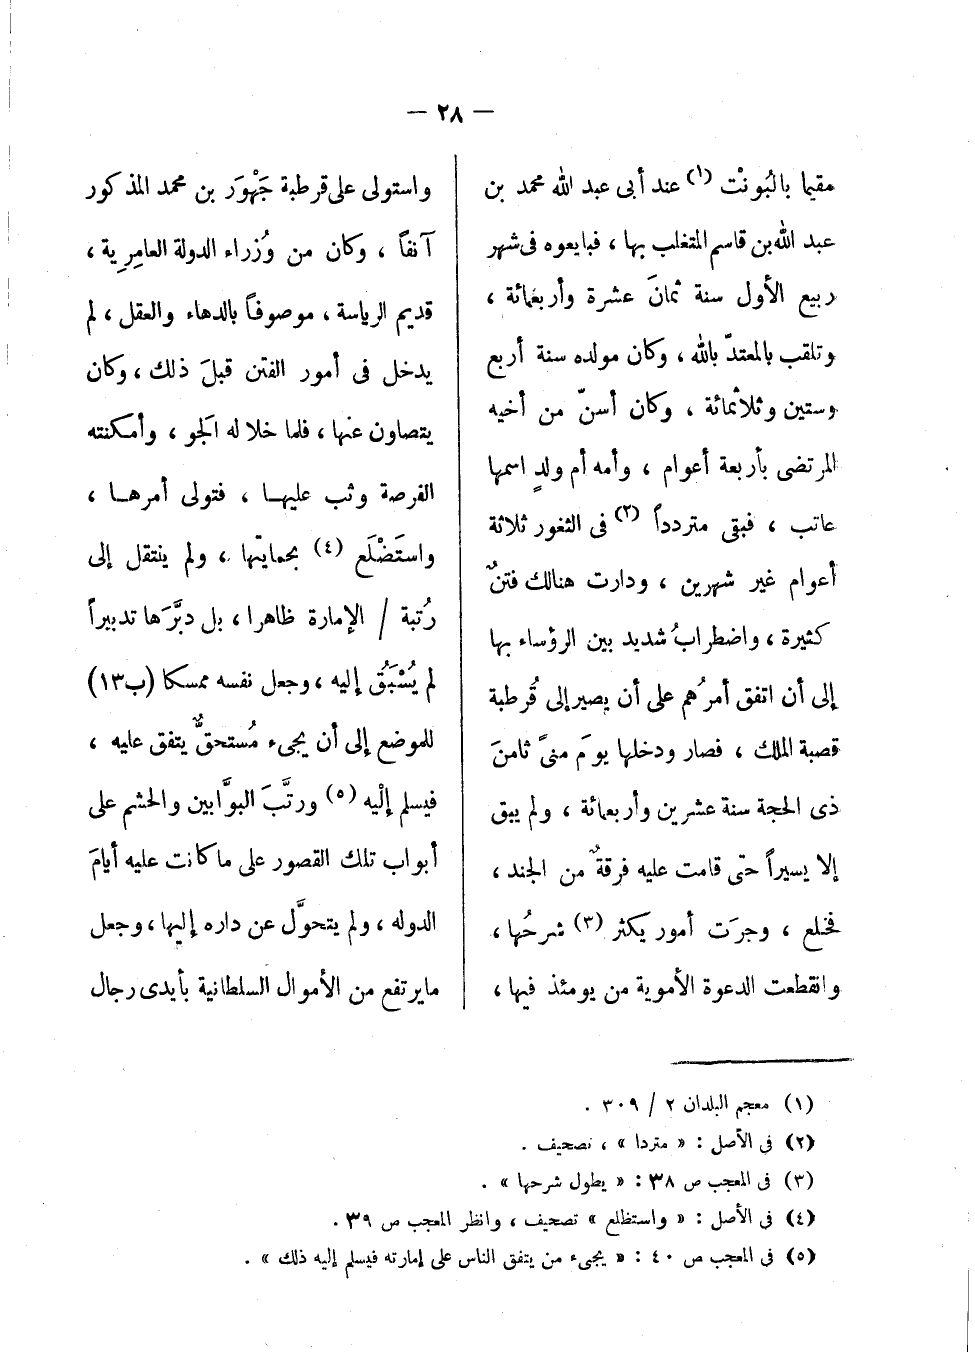 — ٢٨ —
مقيما بالبُونْت (١) عند أبى عبد الله محمد بن
عبد الله بن قاسم المتغلب بها ، فبايعوه فى شهر
ربيع الأول سنة ثمانَ عشرة وأربعمائة ،
وتلقب بالمعتدّ بالله ، وكان مولده سنة أربع
وستين وثلاثمائة ، وكان أسنّ من أخيه
المرتضى بأربعة أعوام ، وأمه أم ولدٍ اسمها
عاتب ، فبقى مترددا (٢) فى الثغور ثلاثة
أعوام غير شهرين ، ودارت هنالك فتنٌ
كثيرة ، واضطرابُ شديد بين الرؤساء بها
إلى أن اتفق أمرُهم على أن يصير إلى قُرطبة
قصبة الملك ، فصار ودخلها يومَ منىً ثامنَ
ذى الحجة سنة عشرين وأربعمائة ، ولم يبق
إلا يسيراً حتّى قامت عليه فرقةٌ من الجند ،
فخلع ، وجرَت أمور يكثر (٣) شرحُها ،
وانقطعت الدعوة الأموية من يومئذ فيها ،
واستولى على قرطبة جَهْوَر بن محمد المذكور
آنفاً ، وكان من وُزراء الدولة العامِرِية ،
قديم الرياسة ، موصوفاً بالدهاء والعقل ، لم
يدخل فى أمور الفتن قبلَ ذلك ، وكان
يتصاون عنها ، فلما خلا له الجو ، وأمكنته
الفرصة وثب عليها ، فتولى أمرها ،
واستَضْلَع (٤) بحمايتها ، ولم ينتقل إلى
رُتبة / الإمارة ظاهرا ، بل دبَّرَها تدبيراً
لم يُسْبَقُ إليه ، وجعل نفسه ممسكا (ب١٣)
للموضع إلى أن يجىء مُستحقٌّ يتفق عليه ،
فيسلم إلْيه (٥) ورتَّبَ البوَّابين والحشم على
أبواب تلك القصور على ما كانت عليه أيامَ
الدوله ، ولم يتحوَّل عن داره إليها ، وجعل
ما يرتفع من الأموال السلطانية بأيدى رجال
(١) معجم البلدان ٢ / ٣٠٩ .
(٢) فى الأصل : « متردا » ، تصحيف .
(٣) فى المعجب ص ٣٨ : « يطول شرحها » .
(٤) فى الأصل : « واستظلع » تصحيف ، وانظر المعجب ص ٣٩ .
(٥) فى المعجب ص ٤٠ : « يجىء من يتفق الناس على إمارته فيسلم إليه ذلك » .